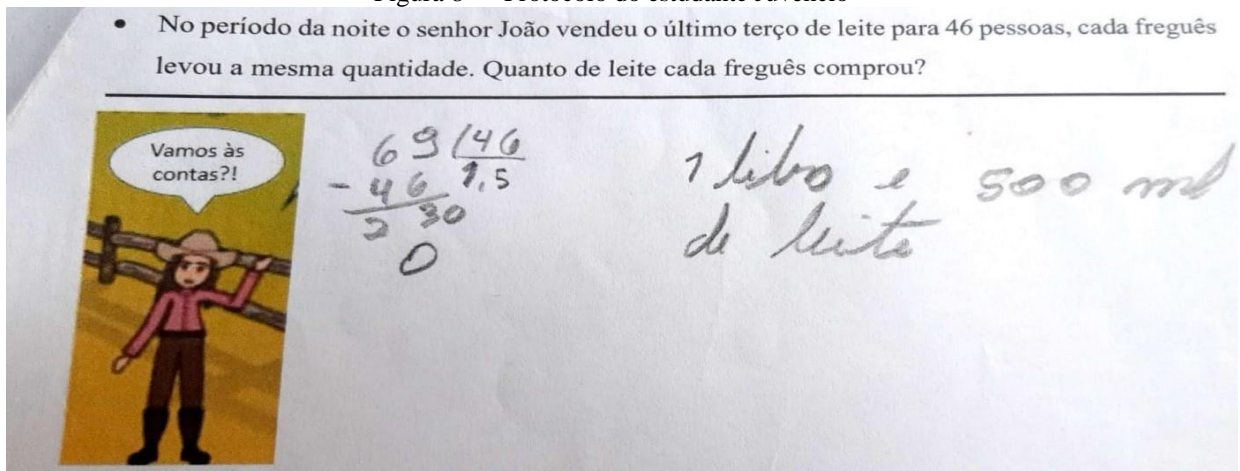 • No período da noite o senhor João vendeu o último terço de leite para 46 pessoas, cada freguês
levou a mesma quantidade. Quanto de leite cada freguês comprou?
Vamos às
contas?!
69 46
- 46 1,5
2 30
0
1 litro e 500 ml
de leite